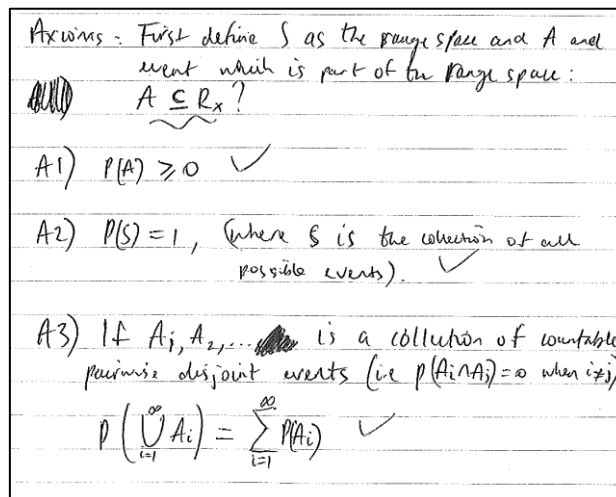 Axioms: First define S as the range space and A and
event which is part of the range space:
A ⊆ Rx?
A1) P(A) ≥ 0 ✓
A2) P(S) = 1, (where S is the collection of all
possible events). ✓
A3) If A1, A2, ... is a collection of countable
pairwise disjoint events (ie P(Ai∩Aj)=0 when i≠j)
P(⋃_{i=1}^{∞} Ai) = ∑_{i=1}^{∞} P(Ai) ✓